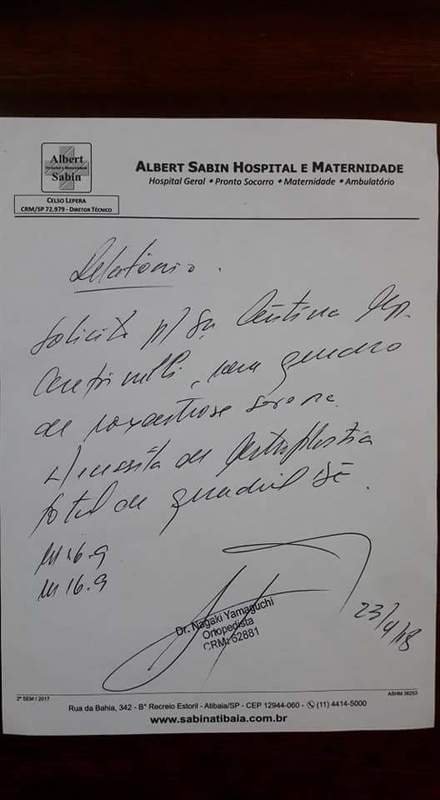 Albert
Hospital e Maternidade
Sabin
CELSO LEPERA
CRM/SP 72.979 - DIRETOR TÉCNICO
ALBERT SABIN HOSPITAL E MATERNIDADE
Hospital Geral • Pronto Socorro • Maternidade • Ambulatório
Relatório.
Solicito p/ Sra
para quadro
de coxartrose
Necessita de Artroplastia
total de quadril
M16.9
M16.9
Dr. Nagaki Yamaguchi
Ortopedista
CRM: 62881
23/4/18
2º SEM / 2017
ASHM 36253
Rua da Bahia, 342 - Bº Recreio Estoril - Atibaia/SP - CEP 12944-060 - (11) 4414-5000
www.sabinatibaia.com.br